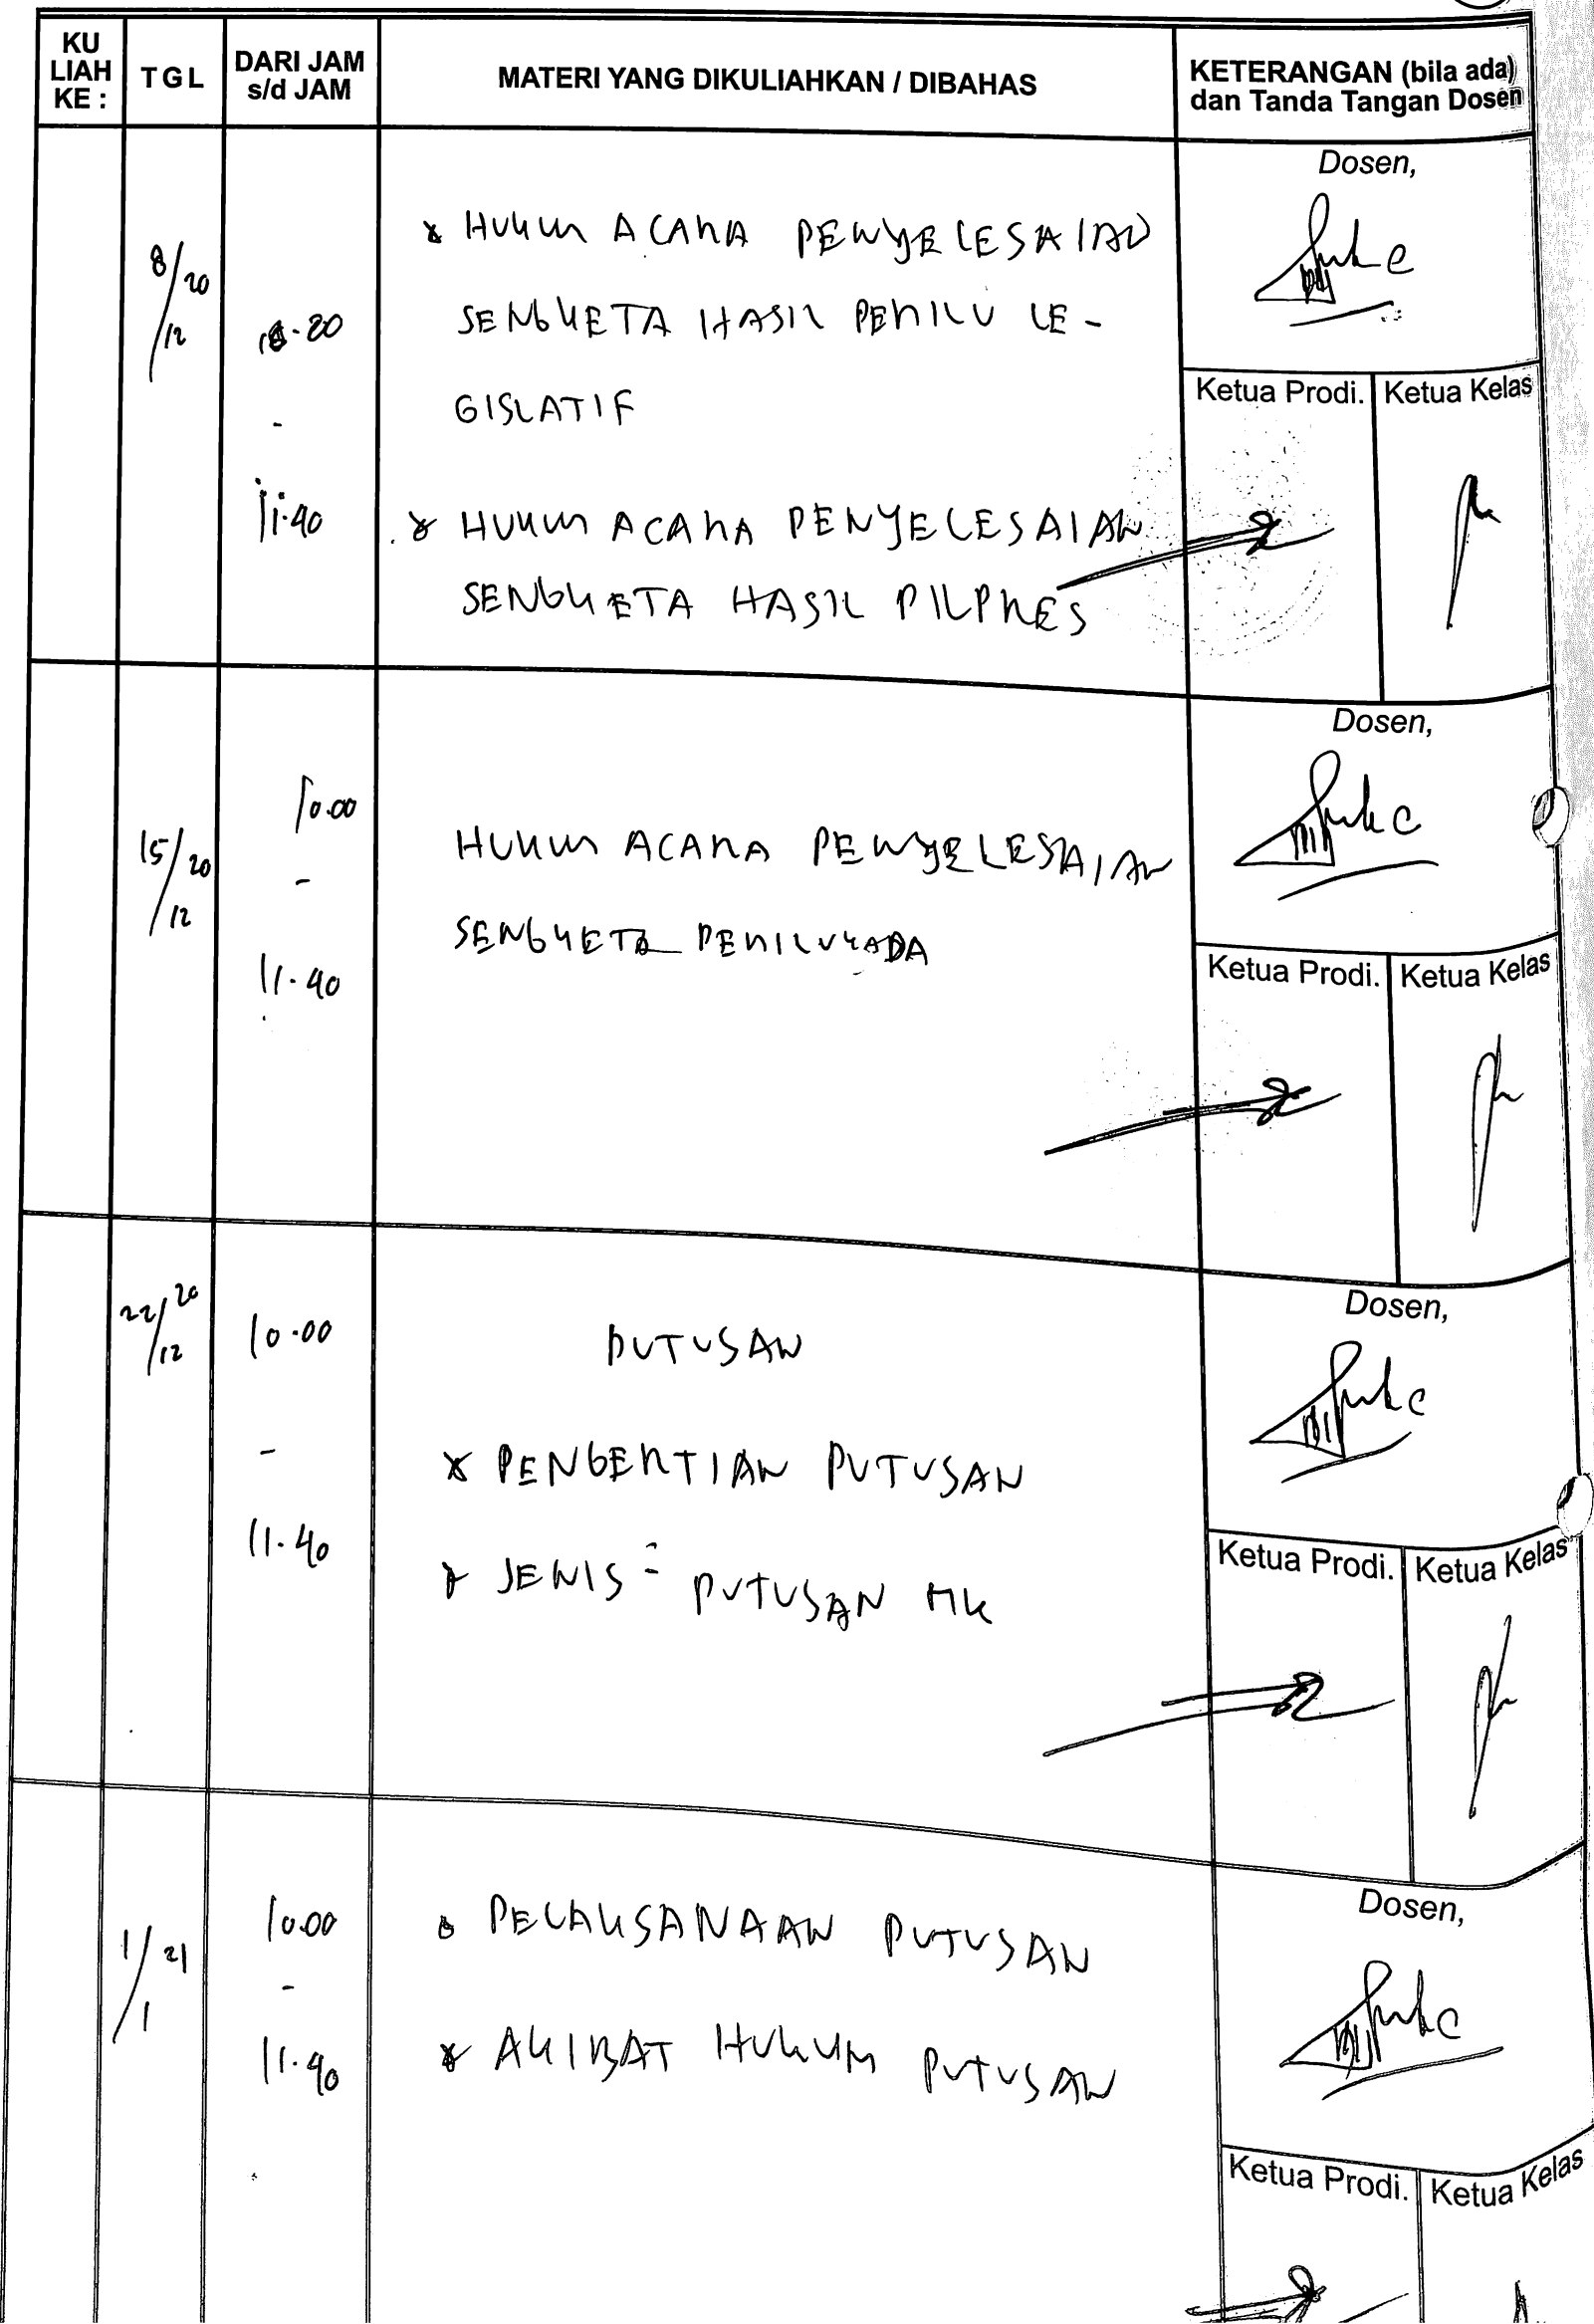 KU LIAH KE :
TGL
DARI JAM s/d JAM
MATERI YANG DIKULIAHKAN / DIBAHAS
KETERANGAN (bila ada)
dan Tanda Tangan Dosen
8/12 20
-
11.40
* HUKUM ACARA PENYELESAIAN
SENGKETA HASIL PEMILU LE-
GISLATIF
* HUKUM ACARA PENYELESAIAN
SENGKETA HASIL PILPRES
Dosen,
Ketua Prodi.
Ketua Kelas
15/12 20
10.00
-
11.40
HUKUM ACARA PENYELESAIAN
SENGKETA PEMILUKADA
Dosen,
Ketua Prodi.
Ketua Kelas
22/12 20
10.00
-
11.40
PUTUSAN
* PENGERTIAN PUTUSAN
* JENIS = PUTUSAN MK
Dosen,
Ketua Prodi.
Ketua Kelas
1/1 21
10.00
-
11.40
* PELAKSANAAN PUTUSAN
* AKIBAT HUKUM PUTUSAN
Dosen,
Ketua Prodi.
Ketua Kelas